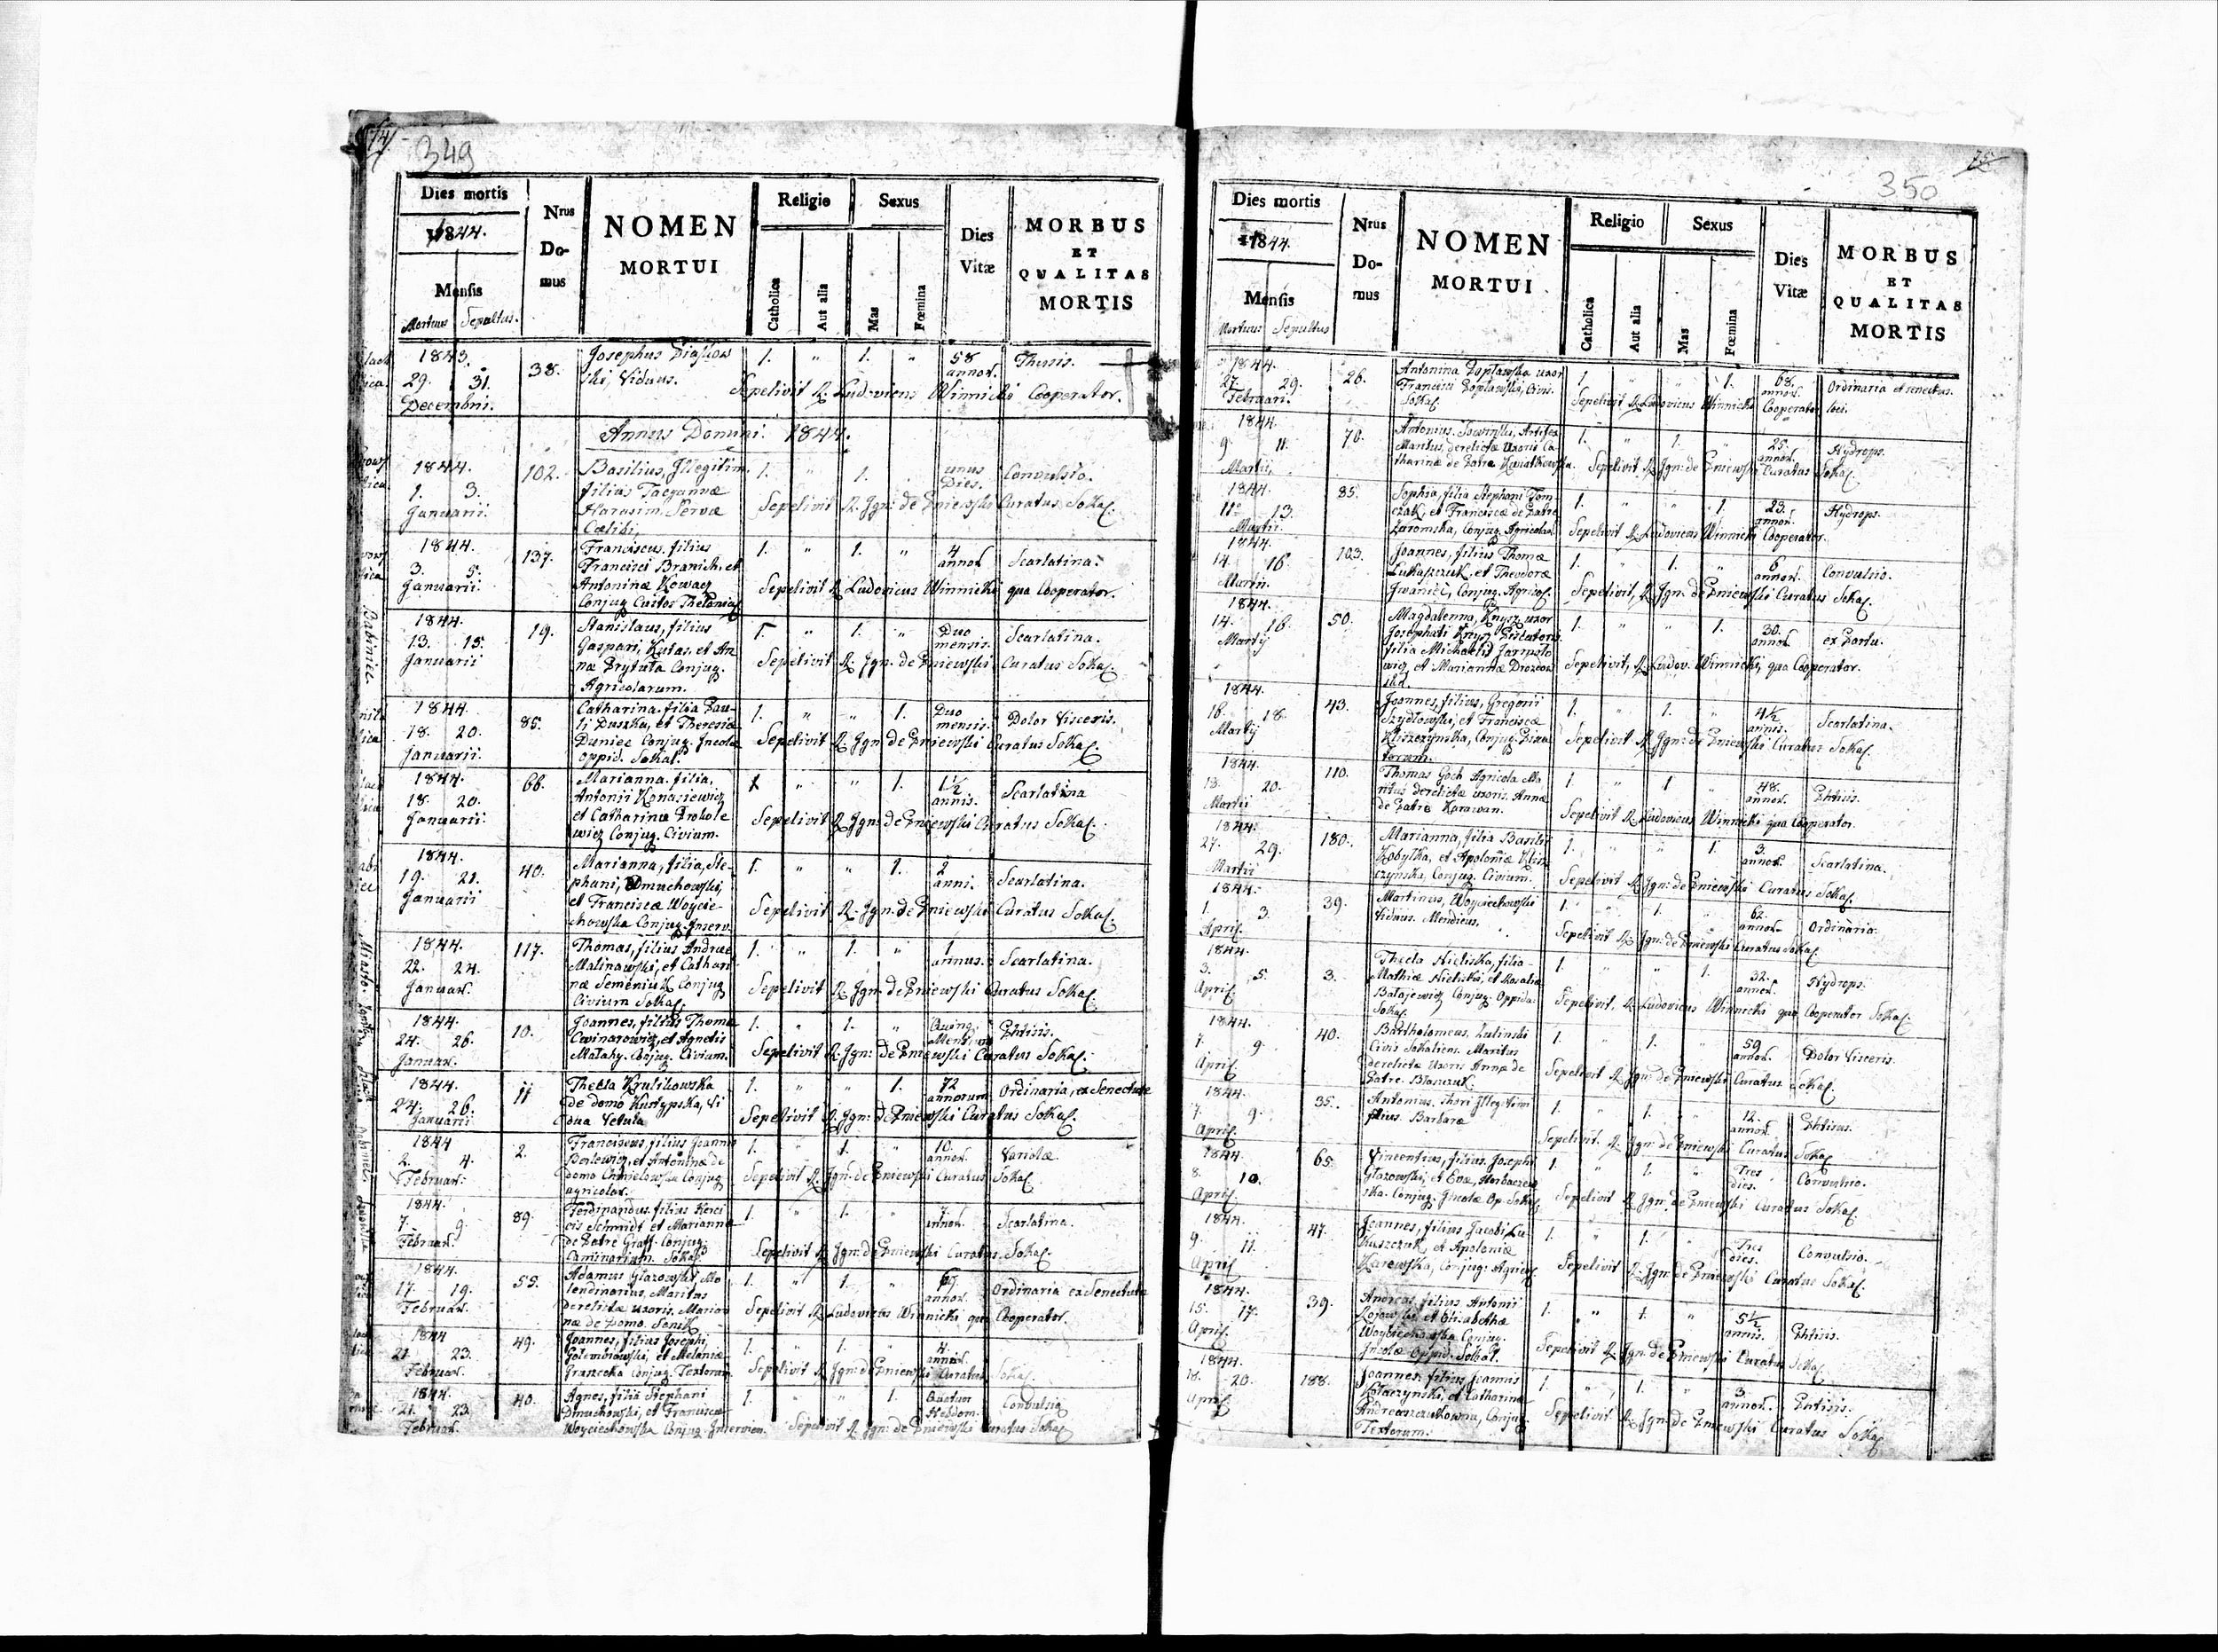 74
349
Dies mortis
1844.
Mensis
Mortuus Sepultus.
Nrus Domus
NOMEN
MORTUI
Religio
Catholica
Aut alia
Sexus
Mas
Fœmina
Dies Vitæ
MORBUS
ET
QUALITAS
MORTIS
1843. 29. 31. Decembri. 38.
Josephus
ski, Viduus.
1. " 1. " 58 annor. Thisis.
Sepelivit R. Ludovicus Winnicki Cooperator.
Annus Domini 1844.
1844. 1. 3. Januarii. 102.
Basilius, Illegitim.
filius Tacyannæ
Harasim. Servæ
Cælibi.
1. " 1. unus Dies. Convulsio.
Sepelivit R. Ign: de Pniewski Curatus Sokal.
1844. 3. 5. Januarii. 137.
Franciscus. filius
Francisci Branich, et
Antoninæ Kowacz
Conjug Custos
1. " 1. " 4 annor Scarlatina.
Sepelivit R Ludovicus Winnicki qua Cooperator.
1844. 13. 15. Januarii 19.
Stanislaus, filius
Gaspari, Kutas. et An
næ Prytuła Conjug.
Agricolarum.
1. " 1. " Duo mensis. Scarlatina.
Sepelivit R. Ign. de Pniewski Curatus Sokal.
1844. 18. 20. Januarii. 85.
Catharina. filia Pau-
li Duszka, et Theresiæ
Duniec Conjug. Incolæ
oppid. Sokal.
1. " " 1. Duo mensis. Dolor Visceris.
Sepelivit R Ign. de Pniewski Curatus Sokal.
1844. 18. 20. Januarii. 66.
Marianna. filia,
Antonii Konasiewicz
et Catharinæ Prokole
wicz Conjug. Civium.
1 " " 1. 1½ annis. Scarlatina
Sepelivit R Ign: de Pniewski Curatus Sokal.
1844. 19. 21. Januarii 40.
Marianna, filia, Ste-
phani, Dmuchowski,
et Franciscæ Woycie-
chowska Conjug. Inserv.
1. " " 1. 2 anni. Scarlatina.
Sepelivit R. Ign. de Pniewski Curatus Sokal.
1844. 22. 24. Januar. 117.
Thomas, filius Andreæ
Malinawski, et Cathari
næ Semeniuk Conjug
Civium Sokal.
1. " 1. " 1 annus. Scarlatina.
Sepelivit R Ign. de Pniewski Curatus Sokal.
1844. 24. 26. Januar. 10.
Joannes, filius Thomæ
Cwinarowicz, et Agnetis
Małahy. Conjug. Civium.
1. " 1. " Phtisis.
Sepelivit R. Ign: de Pniewski Curatus Sokal.
1844. 24. 26. Januarii 11
Thecla Krulikowska
de domo Kurtypska, Vi
dua Vetula
1. " " 1. 72 annorum Ordinaria, ex Senectute
Sepelivit R. Ign: de Pniewski Curatus Sokal.
1844 2. 4. Februar. 2.
Franciscus, filius Joannis
et Antoninæ de
domo Chmielowska Conjug
agricolar.
1. " 1. " 10. annor. Variolæ.
Sepelivit R Ign. de Pniewski Curatus Sokal.
1844. 7. 9. Februar. 89.
Ferdinandus. filius
Schmidt et Mariannæ
de Patre Graff. Conjug:
Caminarium. Sokal.
1. " 1. " 7. annor. Scarlatina.
Sepelivit R Ign: de Pniewski Curatus. Sokal.
1844. 17. 19. Februar. 55.
Adamus Głazowski, Mo
lendinarius, Maritus
derelictæ uxoris. Marian
næ de Domo.
1. " 1. " annor. Ordinaria ex Senectute
Sepelivit R Ludovicus Winnicki qua Cooperator.
1844 21. 23. Februar. 49.
Joannes, filius Josephi
Gołembiowski, et Melaniæ
Conjug. Textorum
1. " 1. " 4. annor.
Sepelivit R Ign: de Pniewski Curatus Sokal.
1844. 21. 23. Februar. 40.
Agnes, filia Stephani
Dmuchowski, et Franciscæ
Woyciechowska Conjug. Inservien.
1. " " 1. Hebdom. Convulsio
Sepelivit R. Ign: de Pniewski Curatus Sokal
75
350
Dies mortis
1844.
Mensis
Mortuus Sepultus
Nrus Domus
NOMEN
MORTUI
Religio
Catholica
Aut alia
Sexus
Mas
Fœmina
Dies Vitæ
MORBUS
ET
QUALITAS
MORTIS
1844. 27. 29. Februari. 26.
Antonina Popławska uxor
Francisci Popławski, Civis.
Sokal.
1. " " 1. 68. annor. Ordinaria et senectus.
Sepelivit R Ludovicus Winnicki Cooperator loci.
1844. 9. 11. Martii, 70.
Antonius. Artifex
Maritus, derelictæ Uxoris Ca
tharinæ de Patre
1. " 1. 25. annor. Hydrops.
Sepelivit R Ign: de Pniewski Curatus Sokal.
1844. 11. 13. Martii. 85.
Sophia, filia Stephani Tom-
czak, et Franciscæ de Patre
Zaromska, Conjug. Agricolar.
1. " " 1. 23. annor. Hydrops.
Sepelivit R Ludovicus Winnicki Cooperator.
1844. 14. 16. Martii. 103.
Joannes, filius Thomæ
Łukaszczuk. et Theodoræ
Iwaniec, Conjug. Agricol.
1. " 1. " 6 annor. Convulsio.
Sepelivit, R Ign. de Pniewski Curatus Sokal.
1844. 14. 16. Martij 50.
Magdalenna, Knysz uxor
Josephati Knysz Piscatoris
filia Michaelis Jarmolo
wicz, et Mariannæ
1. " " 1. 30. annor. ex Partu.
Sepelivit, R Ludov. Winnicki, qua Cooperator.
1844. 16. 18. Martij 43.
Joannes, filius, Gregorii
Szydłowski, et Franciscæ
Kliszczynska, Conjug. Pisca
torum.
1. " 1. " 4½ annis. Scarlatina.
Sepelivit R Ign: de Pniewski Curatus Sokal.
1844. 20. Martii 110.
Thomas Goch Agricola Ma
ritus derelictæ uxoris. Annæ
de Patre Karawan.
1 " 1 " 48. annor. Phtisis.
Sepelivit R Ludovicus Winnicki qua Cooperator.
1844. 27. 29. Martii 180.
Marianna, filia Basilii
Kobyłka, et Apoloniæ Klisz
czynska, Conjug. Civium.
1. " " 1. 3. annor. Scarlatina.
Sepelivit R Ign: de Pniewski Curatus Sokal.
1844. 1. 3. April. 39.
Martinus, Woyciechowski
Viduus. Mendicus.
1. " 1. " 62. annor. Ordinaria.
Sepelivit R Ign: de Pniewski Curatus Sokal.
1844. 3. 5. April. 3.
Thecla Nieliska, filia
Mathiæ Nieliski, et Rosaliæ
Bałajewicz Conjug. Oppida.
Sokal.
1. " " 1. 32. annor. Hydrops.
Sepelivit, R Ludovicus Winnicki qua Cooperator Sokal.
1844. 7. 9. April 40.
Bartholomeus. Zulinski
Civis Sokaliens. Maritus
derelictæ Uxoris Annæ de
Patre.
1. " 1. " 59 annor. Dolor Visceris.
Sepelivit R Ign: de Pniewski Curatus Sokal.
1844. 7. 9. April. 35.
Antonius. Illegitim
filius. Barbaræ
1. " 1. " 12. annor. Phtisis.
Sepelivit. R. Ign: de Pniewski Curatus Sokal
1844. 8. 10. April 65.
Vincentius, filius. Josephi
Głazowski, et Evæ,
ska. Conjug. Incolæ Op. Sokal.
1. " 1. " Tres dies. Convulsio.
Sepelivit R Ign: de Pniewski Curatus Sokal.
1844. 9. 11. April 47.
Joannes, filius Jacobi Łu-
kaszczuk, et Apoloniæ
Karowska, Conjug: Agricol.
1. " 1. " Tres dies. Convulsio.
Sepelivit R Ign: de Pniewski Curatus Sokal.
1844. 15. 17. April. 39.
Andreas, filius Antonii
et Elisabethæ
Woyciechowska Conjug.
Incolæ Oppid. Sokal.
1. " 1. " 5½ annis. Phtisis.
Sepelivit R Ign: de Pniewski Curatus Sokal.
1844. 18. 20. April 188.
Joannes. filius Joannis
et Catharinæ
Andreaszczukowna, Conjug.
Textorum.
1. " 1. " 3. annor. Phtisis.
Sepelivit. R Ign: de Pniewski Curatus Sokal